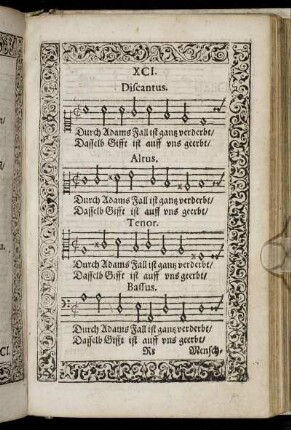 XCI.
Discantus.
Durch Adams Fall ist gantz verderbt/
Dasselb Gifft ist auff vns geerbt/
Altus.
Durch Adams Fall ist gantz verderbt/
Dasselb Gifft ist auff vns geerbt/
Tenor.
Durch Adams Fall ist gantz verderbt/
Dasselb Gifft ist auff vns geerbt/
Bassus.
Durch Adams Fall ist gantz verderbt/
Dasselb Gifft ist auff vns geerbt/
Mensch-
CI.